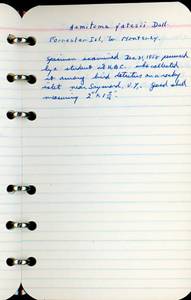 Hemitoma yatesii Dall
Forrester Isl, to Monterey.
Specimen examined Dec 31, 1958 secured
by a student at U.B.C. who collected
it among bird detritus on a rocky
islet near Sayward, V.I. Good shell
measuring 2" x 1